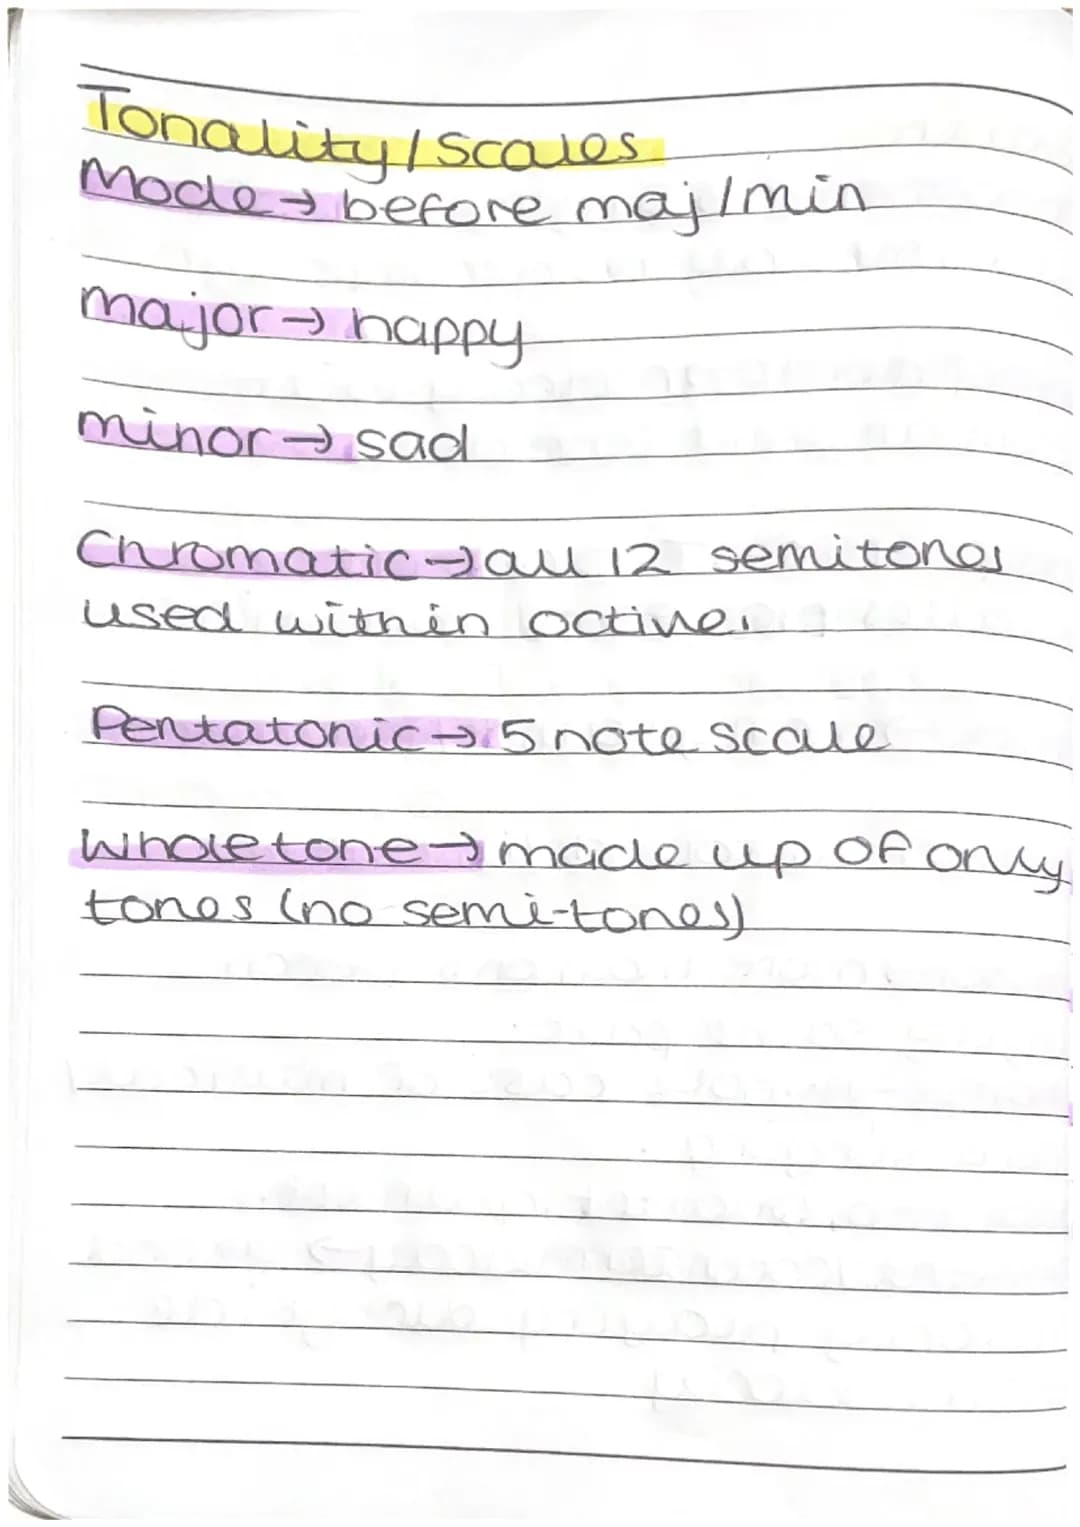 Tonality/Scales
Mode → before maj/min
major → happy
minor → sad
Chromatic → all 12 semitones
used within octive.
Pentatonic → 5 note scale
Wholetone → made up of only
tones (no semi-tones)